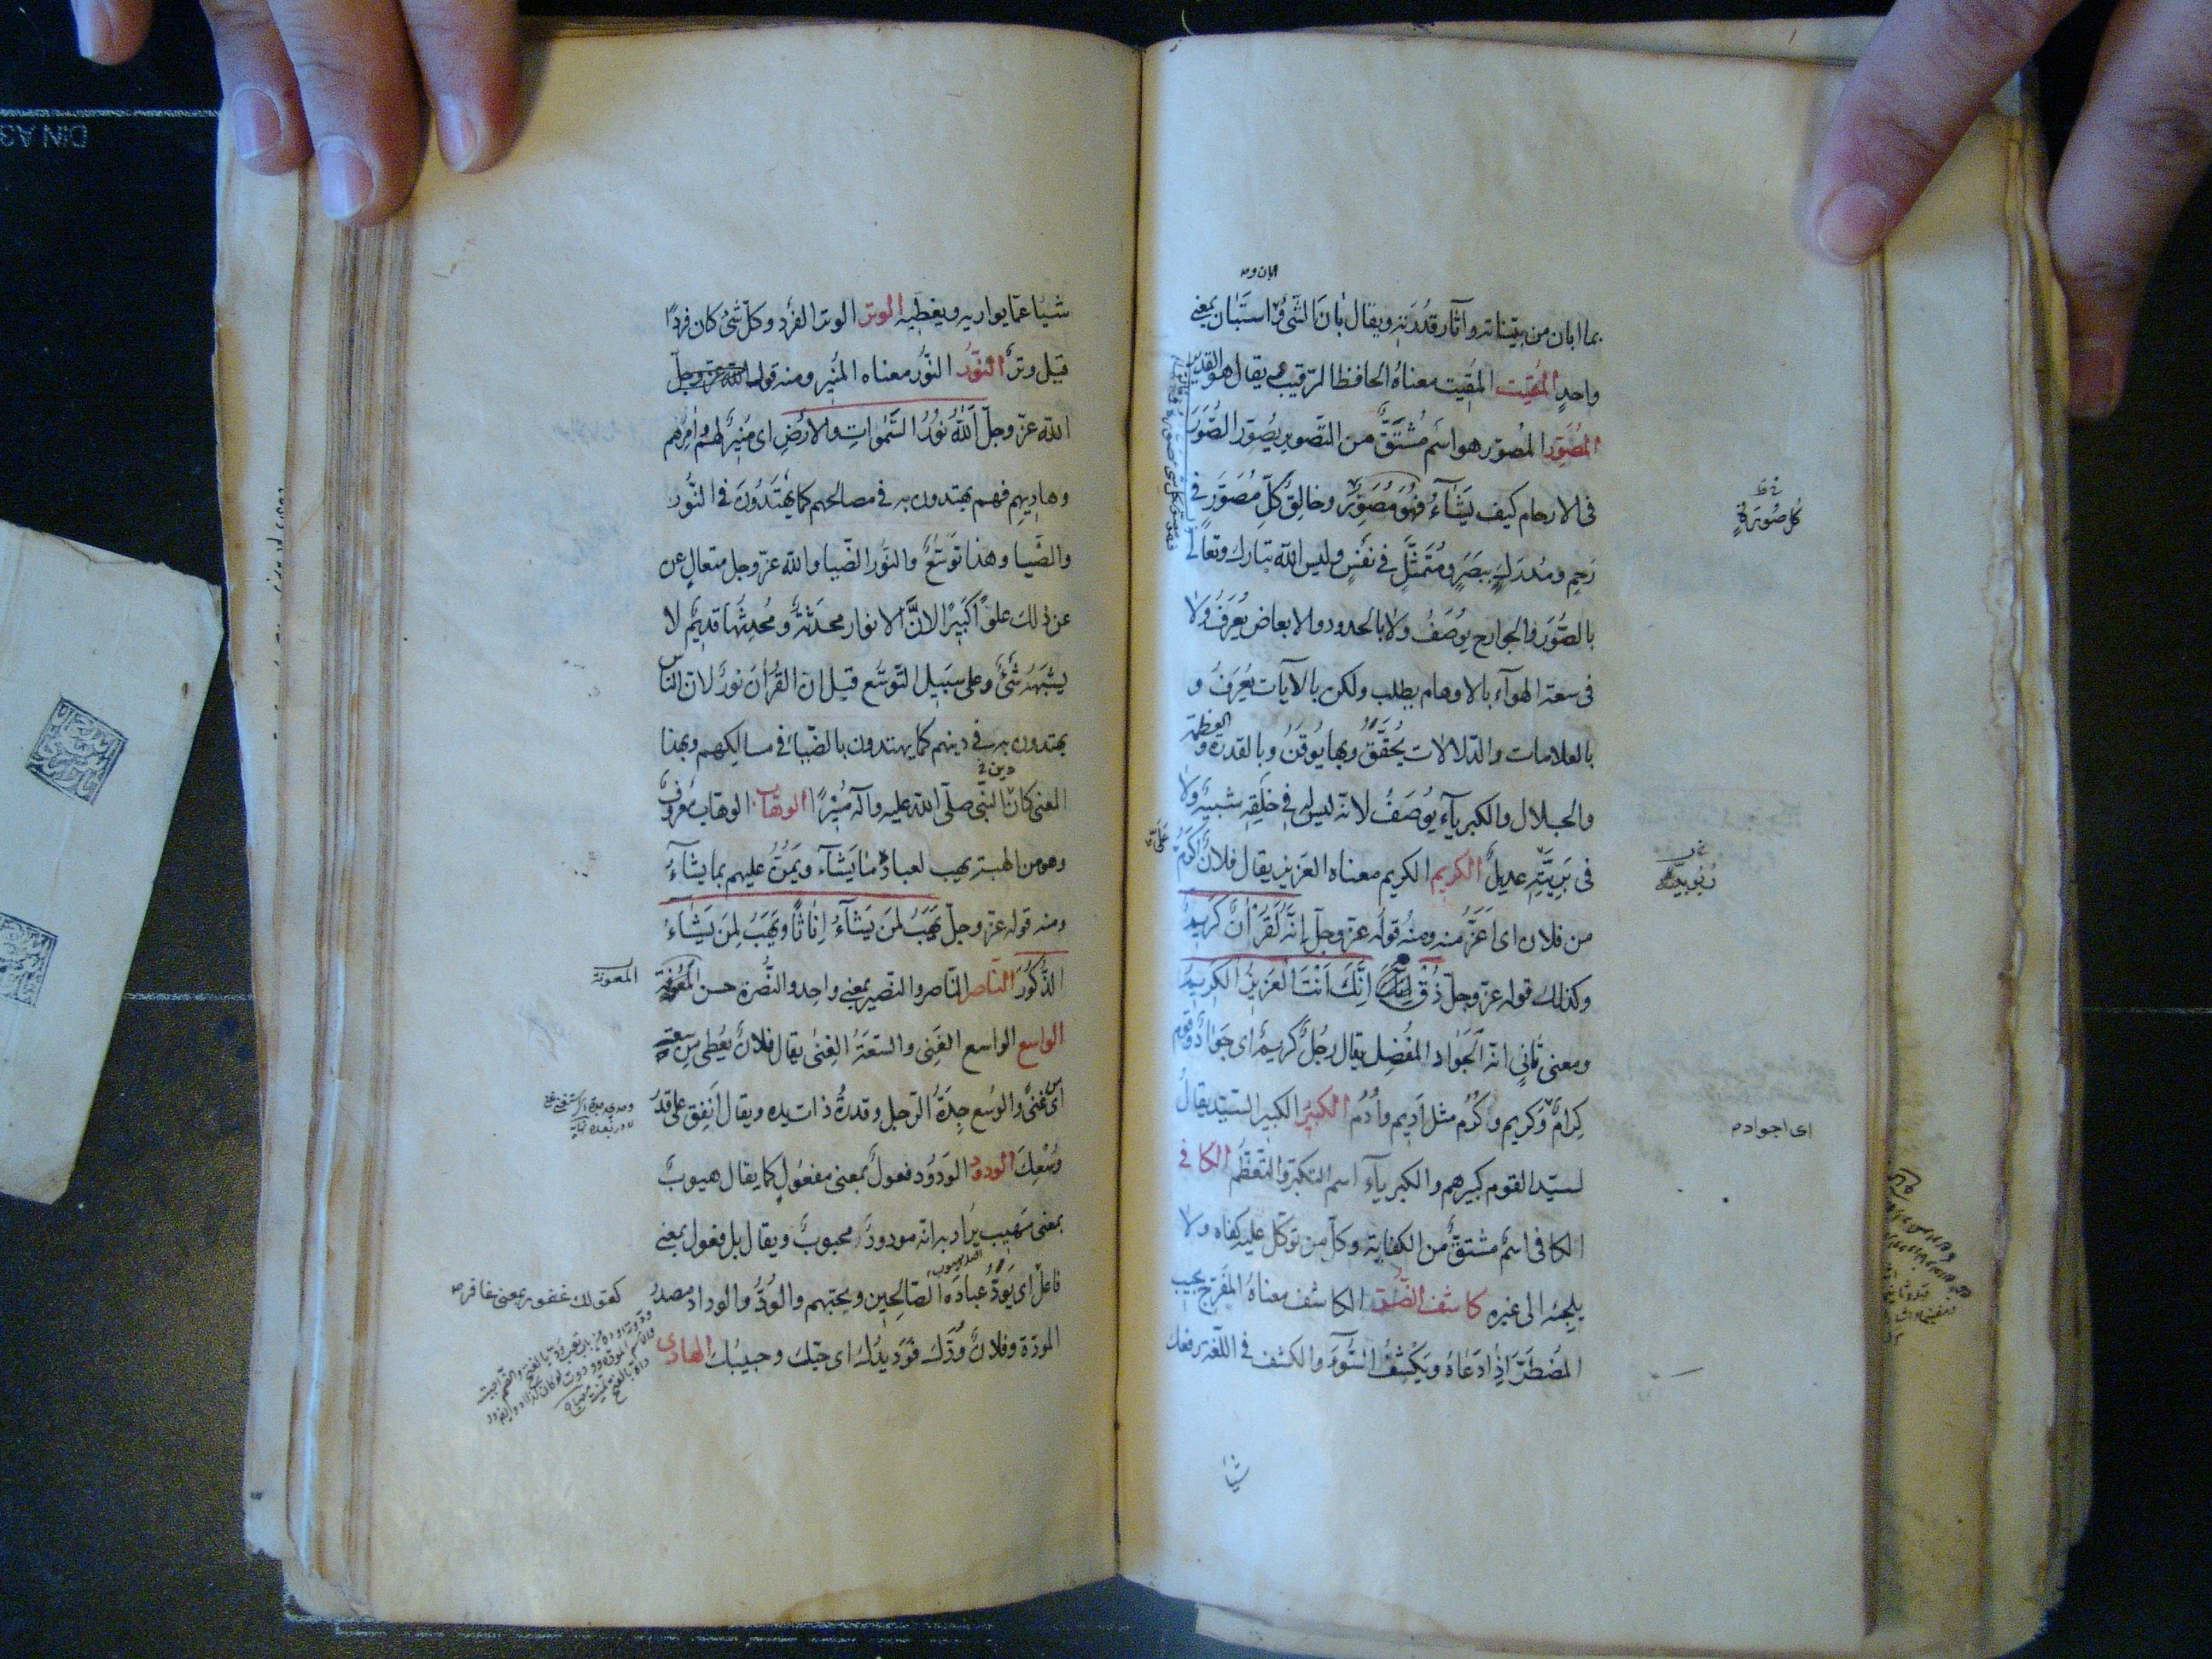 بما ابان من بيّناته وآثار قدرته ويقال بان الشئ واستبان بمعنى
واحد المقيت المقيت معناه الحافظ الرقيب ويقال هو القدير
المصور المصور هو اسم مشتق من التصوير يصور الصور
فى الارحام كيف يشاء فهو مصور وخالق كل مصور فى
رحم ومدرك ببصر ومتمثل فى نفس وليس الله تبارك وتعالى
بالصور والجوارح يوصف ولا بالحدود والابعاض يعرف ولا
فى سعة الهواء بالاوهام يطلب ولكن بالآيات يعرف و
بالعلامات والدلالات يحقق وبها يوقن وبالقدرة والعظمة
والجلال والكبرياء يوصف لانه ليس له فى خلقه شبيه ولا
فى بريته عديل الكريم الكريم معناه العزيز يقال فلان اكرم
من فلان اى اعز منه ومنه قوله عز وجل إنه لقرآن كريم
وكذلك قوله عز وجل ذق انك انت العزيز الكريم
ومعنى ثانى انه الجواد المفضل يقال رجل كريم اى جواد وقوم
كرام وكريم وكرم مثل اديم وأدم الكبير الكبير السيد يقال
لسيد القوم كبيرهم والكبرياء اسم التكبر والتعظم الكافى
الكافى اسم مشتق من الكفاية وكل من توكل عليه كفاه ولا
يلجئه الى غيره كاشف الضر الكاشف معناه المفرج يجيب
المضطر اذا دعاه ويكشف السوء والكشف فى اللغة رفعك
شيئا
كل صورة
اى اجواد
شيئا عما يواريه ويغطيه الوتر الوتر الفرد وكل شئ كان فردا
قيل وتر النور النور معناه المنير ومنه قوله الله عز وجل
الله عز وجل الله نور السموات والارض اى منير لهم وآمرهم
وهاديهم فهم يهتدون به فى مصالحهم كما يهتدون فى النور
والضيا وهذا توسع والنور الضيا والله عز وجل متعال عن
عن ذلك علوا كبيرا لان الانوار محدثة ومحدثها قديم لا
يشبهه شئ وعلى سبيل التوسع قيل ان القرآن نور لان الناس
يهتدون به فى دينهم كما يهتدون بالضياء فى مسالكهم وبهذا
المعنى كان النبى صلى الله عليه وآله منيرا الوهاب الوهاب معروف
وهو من الهبة يهب لعباده ما يشاء ويمن عليهم بما يشاء
ومنه قوله عز وجل يهب لمن يشاء إناثا ويهب لمن يشاء
الذكور الناصر الناصر والنصير بمعنى واحد والنصرة حسن المعونة
الواسع الواسع الغنى والسعة الغنى يقال فلان يعطى من سعته
اى من غنى والوسع جدة الرجل وقدرة ذات يده ويقال انفق على قدر
وسعك الودود الودود فعول بمعنى مفعول كما يقال هيوب
بمعنى مهيب يراد به انه مودود محبوب ويقال بل فعول بمعنى
فاعل اى يود عباده الصالحين ويحبهم والود والوداد مصدر
المودة وفلان ودك ووديدك اى حبك وحبيبك الهادى
المعونة
كقولك غفور بمعنى غافر
DIN A3